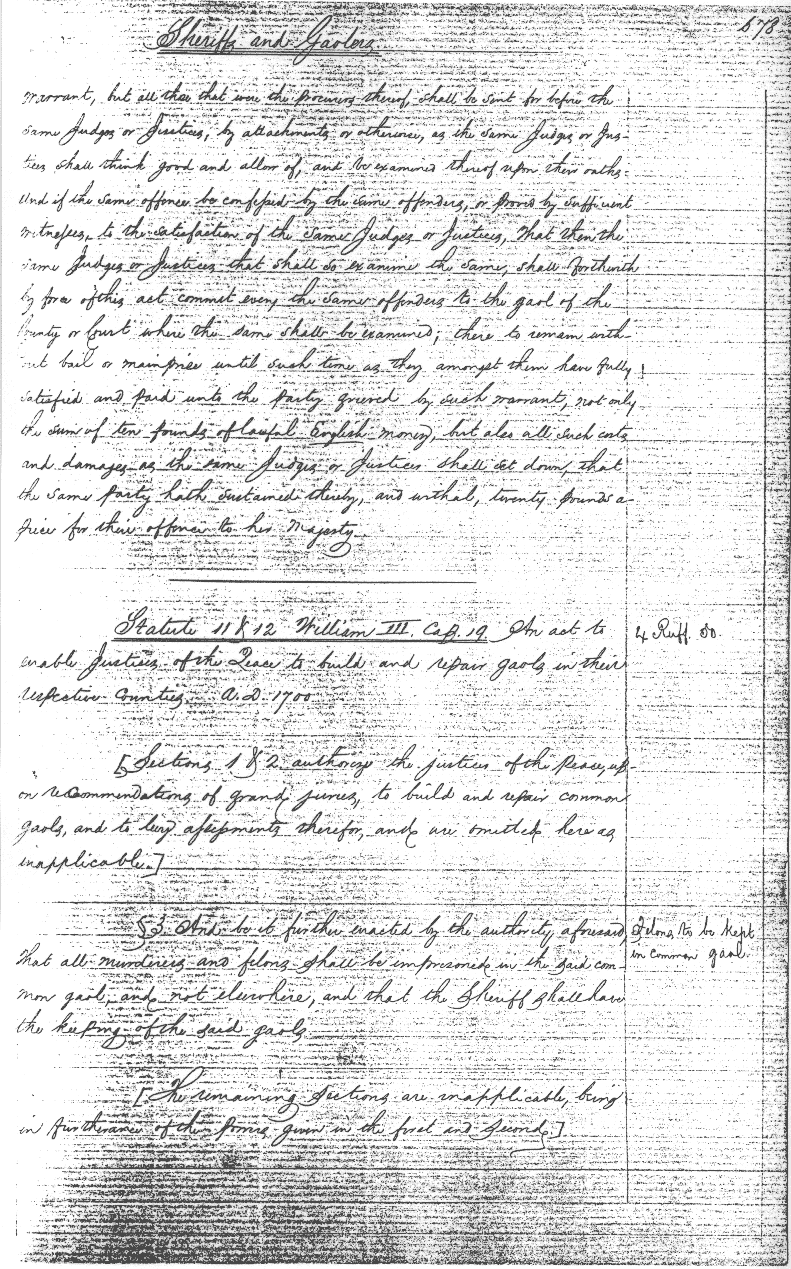 678
Sheriffs and Gaolers
warrant, but all those that were the procurers thereof, shall be sent for before the
same Judges or Justices, by attachments or otherwise, as the same Judges or Jus-
tices shall think good and allow of, and be examined thereof upon their oaths.
And if the same offence be confessed by the same offenders, or proved by sufficient
witnesses, to the satisfaction of the same Judges or Justices, That then the
same Judges or Justices that shall so examine the same, shall forthwith
by force of this act commit every the same offenders to the gaol of the
County or Court where the same shall be examined; there to remain with-
out bail or mainprise until such time as they amongst them have fully
satisfied and paid unto the party grieved by such warrant, not only
the sum of ten pounds of lawful English money, but also all such costs
and damages as the same Judges or Justices shall set down, that
the same party hath sustained thereby, and withal, twenty pounds a-
piece for their offence to her Majesty.
Statute 11 & 12 William III. Cap. 19. An act to
enable Justices of the Peace to build and repair gaols in their
respective counties. A.D. 1700
4 Ruff. 50
[Sections 1 & 2 authorize the justices of the peace, up-
on recommendations of grand juries, to build and repair common
gaols, and to levy assessments therefor, and are omitted here as
inapplicable.]
§3. And be it further enacted by the authority aforesaid,
That all murderers and felons shall be imprisoned in the said com-
mon gaol, and not elsewhere, and that the Sheriff shall have
the keeping of the said gaols.
Felons to be kept
in common gaol.
[The remaining sections are inapplicable, being
in furtherance of the powers given in the first and second.]